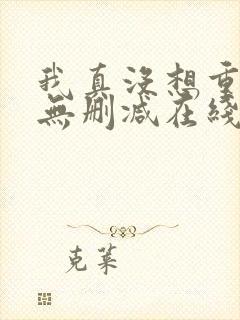 我真没想重
無删减在綫
克莱